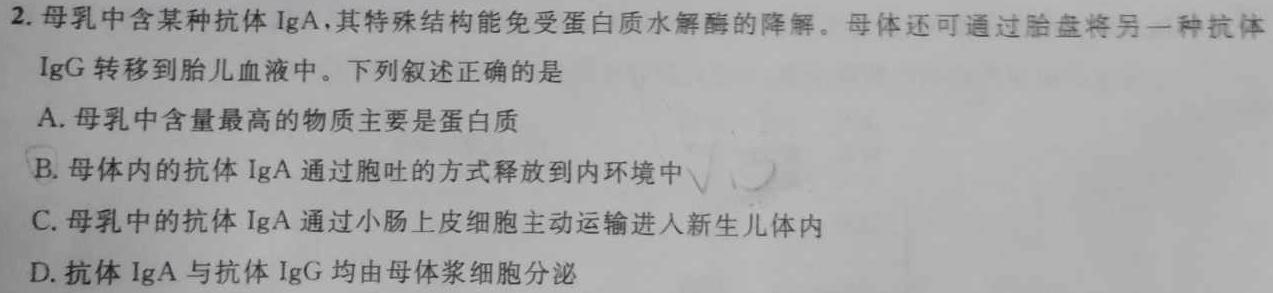 2. 母乳中含某种抗体 IgA,其特殊结构能免受蛋白质水解酶的降解。母体还可通过胎盘将另一种抗体
IgG 转移到胎儿血液中。下列叙述正确的是
A. 母乳中含量最高的物质主要是蛋白质
B. 母体内的抗体 IgA 通过胞吐的方式释放到内环境中√
C. 母乳中的抗体 IgA 通过小肠上皮细胞主动运输进入新生儿体内
D. 抗体 IgA 与抗体 IgG 均由母体浆细胞分泌